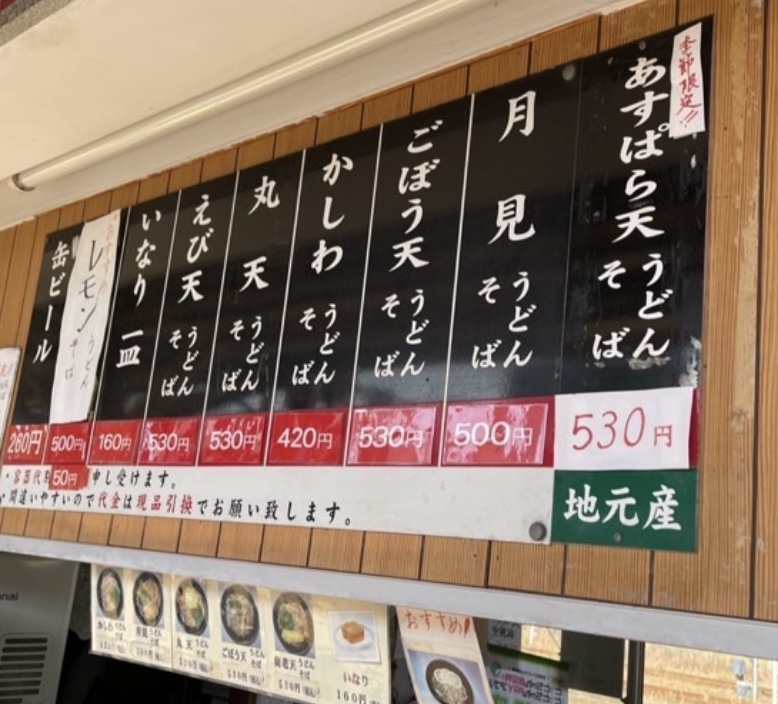 季節限定!!
あすぱら天 うどん そば
530円
地元産
月見 うどん そば
500円
ごぼう天 うどん そば
530円
かしわ うどん そば
420円
丸天 うどん そば
530円
えび天 うどん そば
530円
いなり 一皿
160円
レモン うどん そば
500円
缶ビール
260円
50円 申し受けます。
間違いやすいので代金は現品引換でお願い致します。
かしわ うどん そば
丸天 うどん そば
ごぼう天 うどん そば
いなり
160円
おすすめ